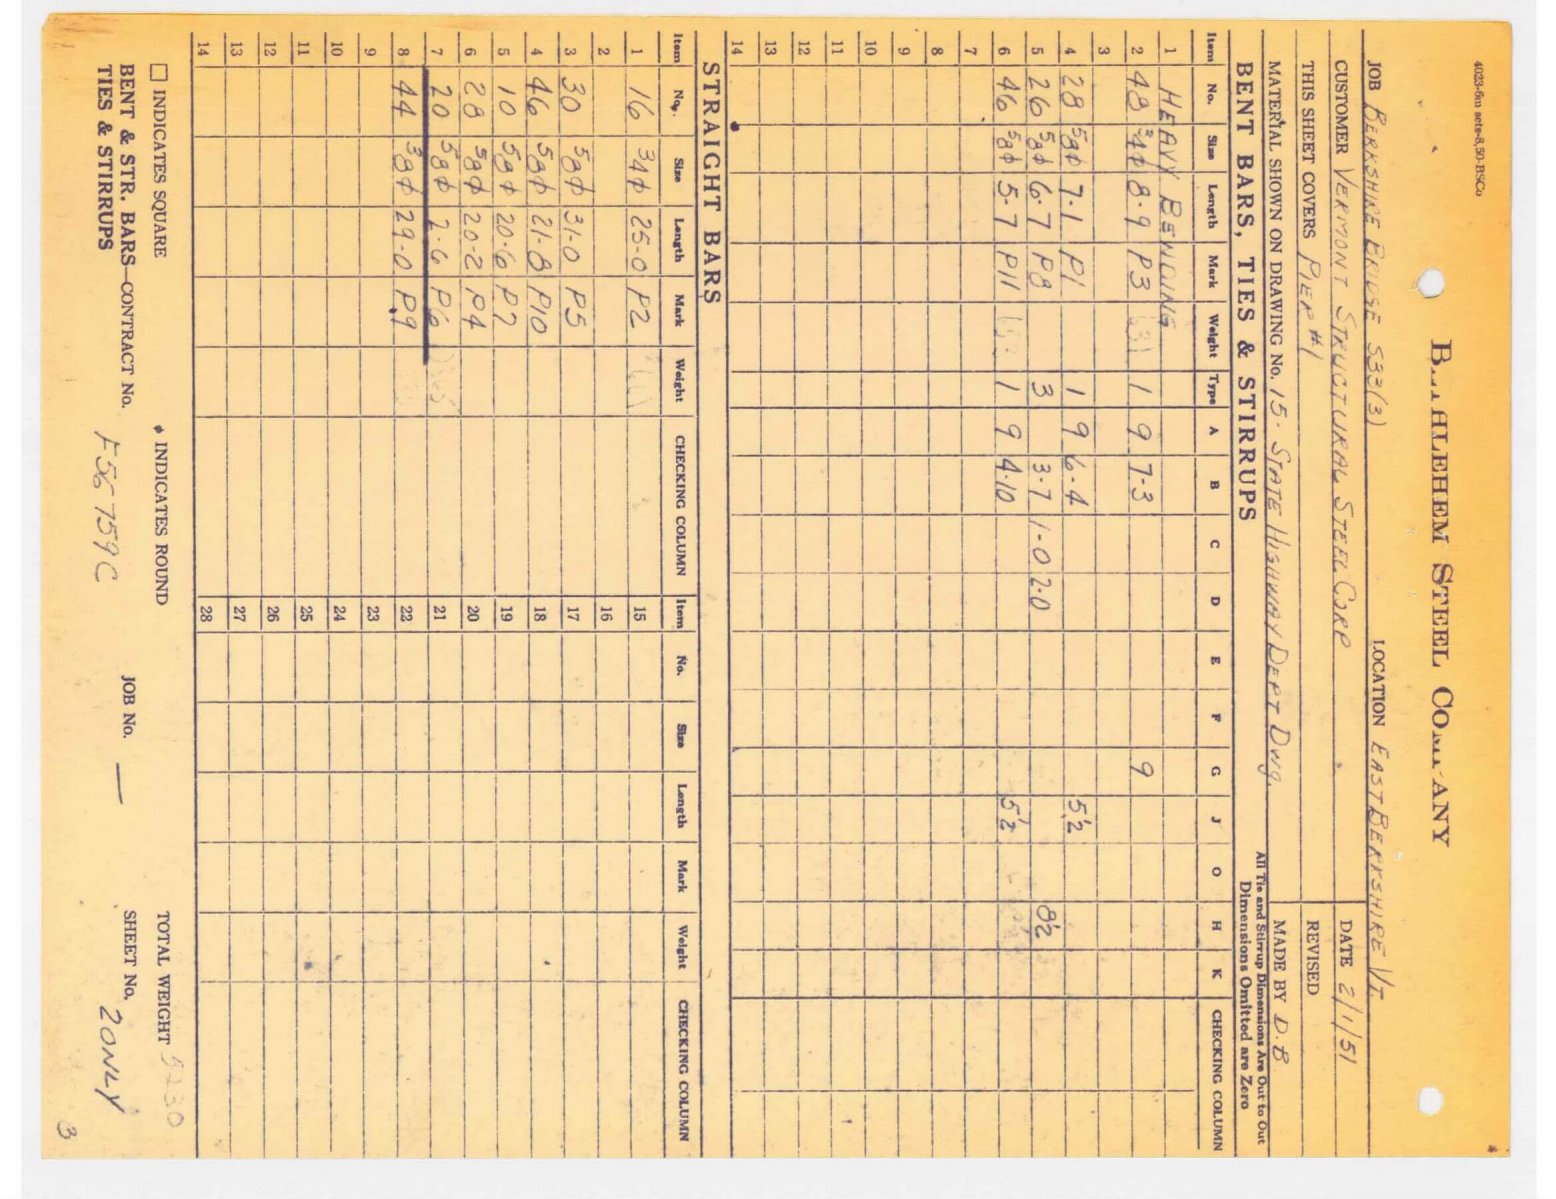 4023-6m sets-8,50-BSCo
BETHLEHEM STEEL COMPANY
JOB BERKSHIRE BRIDGE S33(3) LOCATION EAST BERKSHIRE VT.
CUSTOMER VERMONT STRUCTURAL STEEL CORP DATE 2/1/51
THIS SHEET COVERS PIER #1 REVISED
MATERIAL SHOWN ON DRAWING No. 15. STATE HIGHWAY DEPT DWG. MADE BY D.B
BENT BARS, TIES & STIRRUPS All Tie and Stirrup Dimensions Are Out to Out
Dimensions Omitted are Zero
Item No. Size Length Mark Weight Type A B C D E F G J O H K CHECKING COLUMN
1 HEAVY BENDING
2 48 3/4ϕ 8-9 P3 1 9 7-3 9
3
4 28 5/8ϕ 7-1 P1 1 9 6-4 5½
5 26 5/8ϕ 6-7 P8 3 3-7 1-0 2-0 8½
6 46 5/8ϕ 5-7 P11 1 9 4-10 5½
7
8
9
10
11
12
13
14
STRAIGHT BARS
Item No. Size Length Mark Weight CHECKING COLUMN Item No. Size Length Mark Weight CHECKING COLUMN
1 16 3/4ϕ 25-0 P2 15
2 16
3 30 5/8ϕ 31-0 P5 17
4 46 5/8ϕ 21-8 P10 18
5 10 5/8ϕ 20-6 P7 19
6 28 5/8ϕ 20-2 P4 20
7 20 5/8ϕ 2-6 P6 21
8 44 3/8ϕ 29-0 P9 22
9 23
10 24
11 25
12 26
13 27
14 28
☐ INDICATES SQUARE ϕ INDICATES ROUND TOTAL WEIGHT 5230
BENT & STR. BARS—CONTRACT No. F56759C JOB No. — SHEET No. 2 ONLY
TIES & STIRRUPS
3